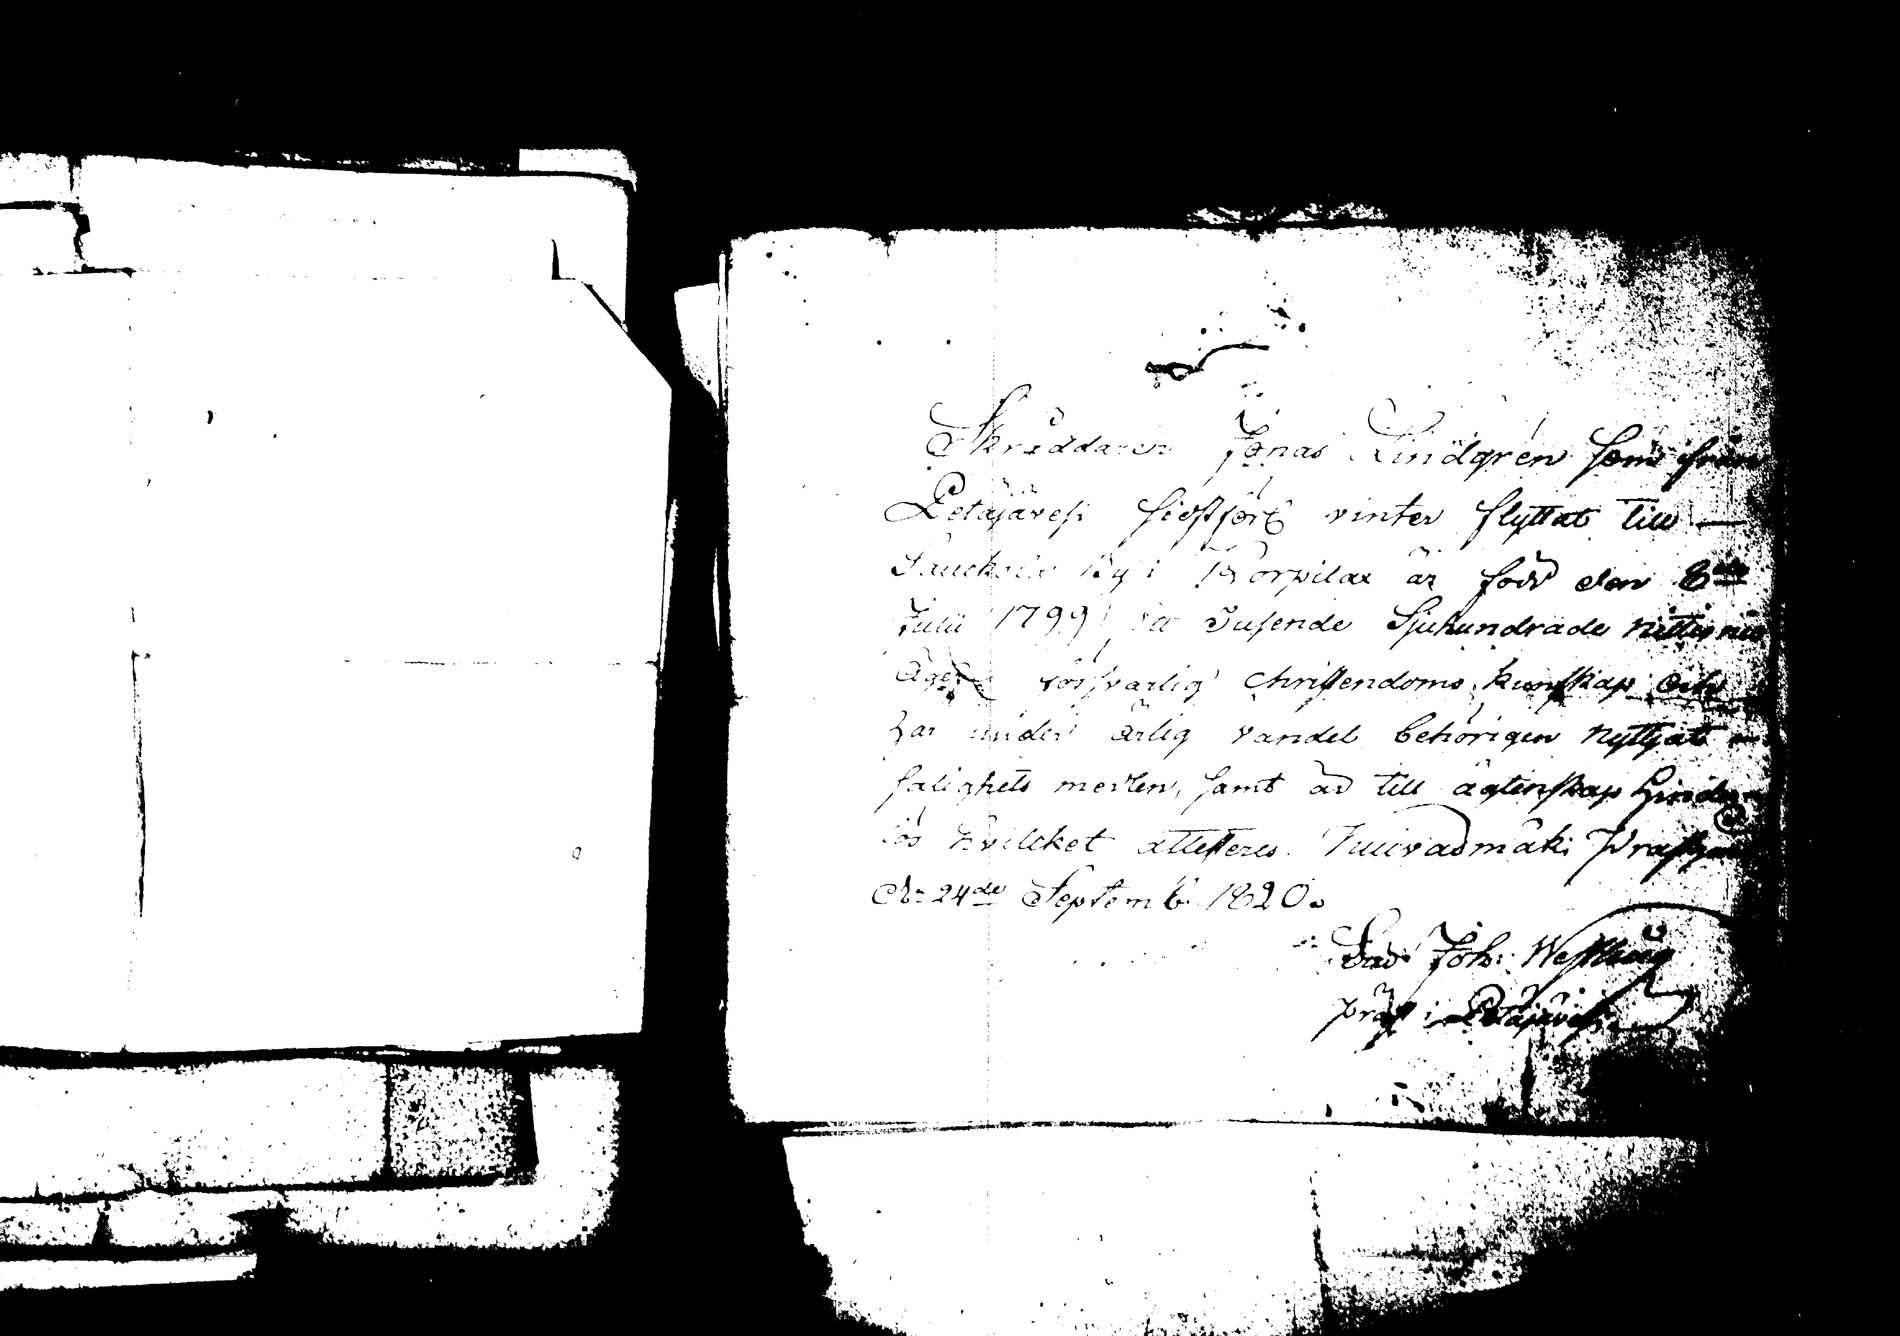 Skräddaren Jonas Lindgrén som från
Petäjävesi sidstförl vinter flyttat till —
by i Korpilax är född den 8de
Julii 1799 Tusende Sjuhundrade nittionio
Äger försvarlig christendoms kunskap och
har under ärlig vandel behörigen nyttjat
salighets medlen, samt är till ägtenskap hinder
lös hvilcket attesteres. Kuivasmäki
d: 24de Septemb 1820.
Joh: Westling
präst i Petäjävesi